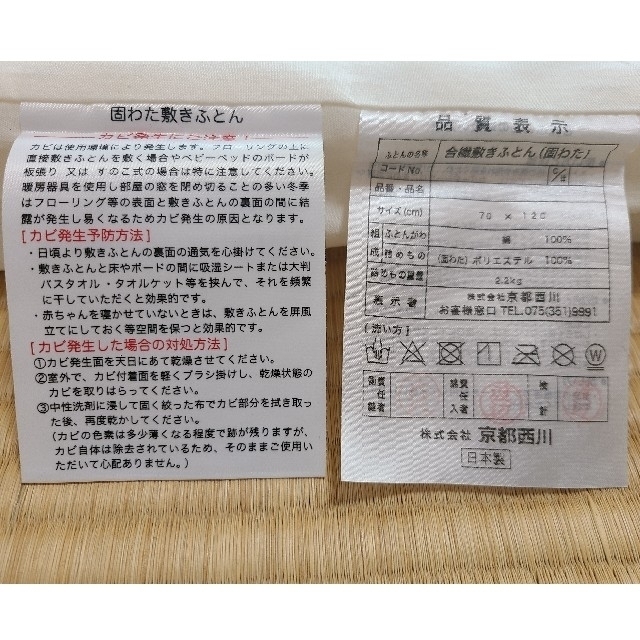 固わた敷きふとん
カビ発生にご注意！
カビは使用環境により発生します。フローリングの上に
直接敷きふとんを敷く場合やベビーベッドのボードが
板張り 又は すのこ式の場合は特に注意してください。
暖房器具を使用し部屋の窓を閉め切ることの多い冬季
はフローリング等の表面と敷きふとんの裏面の間に結
露が発生し易くなるためカビ発生の原因となります。
[カビ発生予防方法]
・日頃より敷きふとんの裏面の通気を心掛けてください。
・敷きふとんと床やボードの間に吸湿シートまたは大判
バスタオル・タオルケット等を挟んで、それを頻繁
に干していただくと効果的です。
・赤ちゃんを寝かせていないときは、敷きふとんを屏風
立てにしておく等空間を保つと効果的です。
[カビ発生した場合の対処方法]
①カビ発生面を天日にあて乾燥させてください。
②室外で、カビ付着面を軽くブラシ掛けし、乾燥状態の
カビを取りはらってください。
③中性洗剤に浸して固く絞った布でカビ部分を拭き取っ
た後、再度乾かしてください。
(カビの色素は多少薄くなる程度で跡が残りますが、
カビ自体は除去されているため、そのままご使用い
ただいて心配ありません。)
品質表示
ふとんの名称 合繊敷きふとん(固わた)
コードNo.
品番・品名
サイズ(cm) 70 × 120
組成 ふとんがわ 綿 100%
詰めもの (固わた) ポリエステル 100%
詰めもの重量 2.2kg
表示者 株式会社 京都西川
お客様窓口 TEL.075(361)9991
[洗い方]
W
製造責任者 検
株式会社 京都西川
日本製